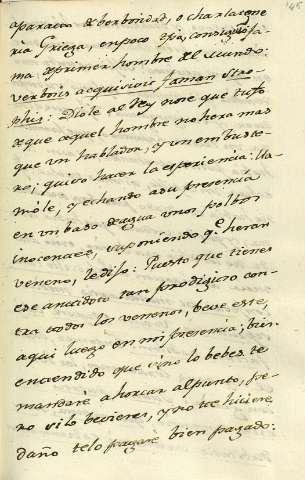 145
aparato de berbosidad, o charlatane
ria Griega, en poco dia, consiguio fa
ma de primer hombre del mundo:
verbosis acquisivit famam stro
phis: Diole al Rey no se que tufo
de que aquel hombre no hera mas
que un hablador, y un embuste-
ro; quiso hacer la experiencia: lla-
mole, y echando a su presencia
en un baso de agua unos polbos
inocentes, suponiendo q.e heran
veneno, le dijo: Puesto que tienes
ese antidoto tan prodigioso con-
tra todos los venenos, beve este,
aqui luego en mi presencia; bien
entendido que si no lo bebes te
mandaré a horcar al punto, pe-
ro si lo bevieres, y no te hiciere
daño te lo pagaré bien pagado: